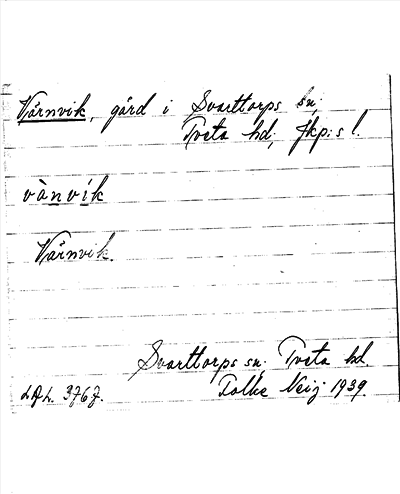 Vårnvik, gård i Svarttorps sn,
Tveta hd, Jkp:s l.
vànvík
Vårnvik.
Svarttorps sn, Tveta hd.
Folke Neij 1939.